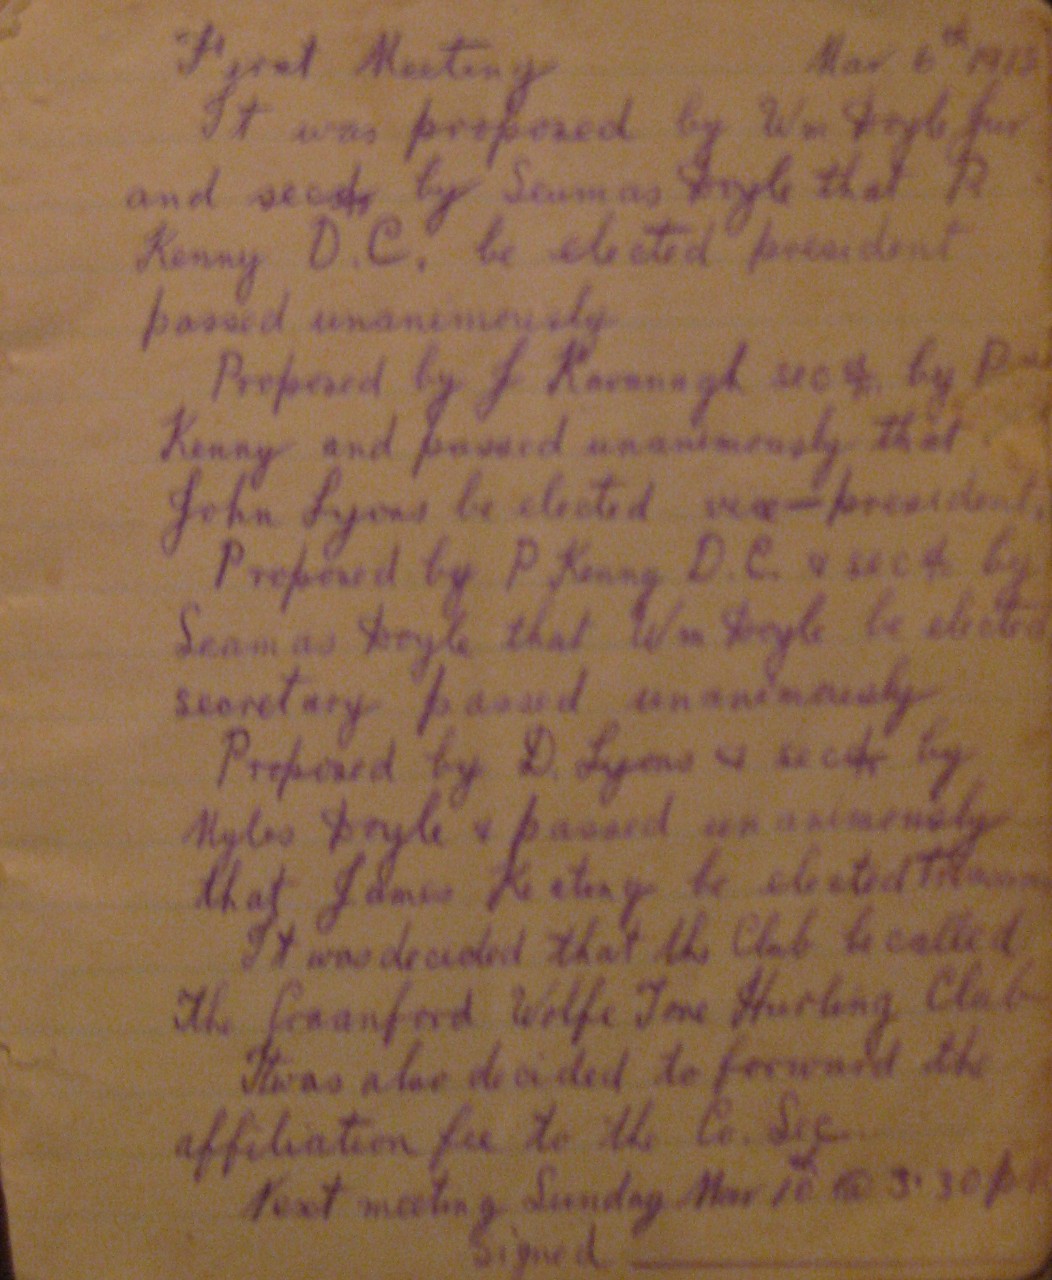 First Meeting Mar 6th 1913
It was proposed by Wm Doyle jur
and secd by Seumas Doyle that P
Kenny D.C. be elected president
passed unanimously
Proposed by J Kavanagh secd. by P
Kenny and passed unanimously that
John Lyons be elected vice-president.
Proposed by P Kenny D.C. & secd by
Seamas Doyle that Wm Doyle be elected
secretary passed unanimously
Proposed by D. Lyons & secd by
Myles Doyle & passed unanimously
that James Keting be elected
It was decided that the Club be called
The Craanford Wolfe Tone Hurling Club
It was also decided to forward the
affiliation fee to the Co. Sec
Next meeting Sunday Mar @ 3.30 p
Signed